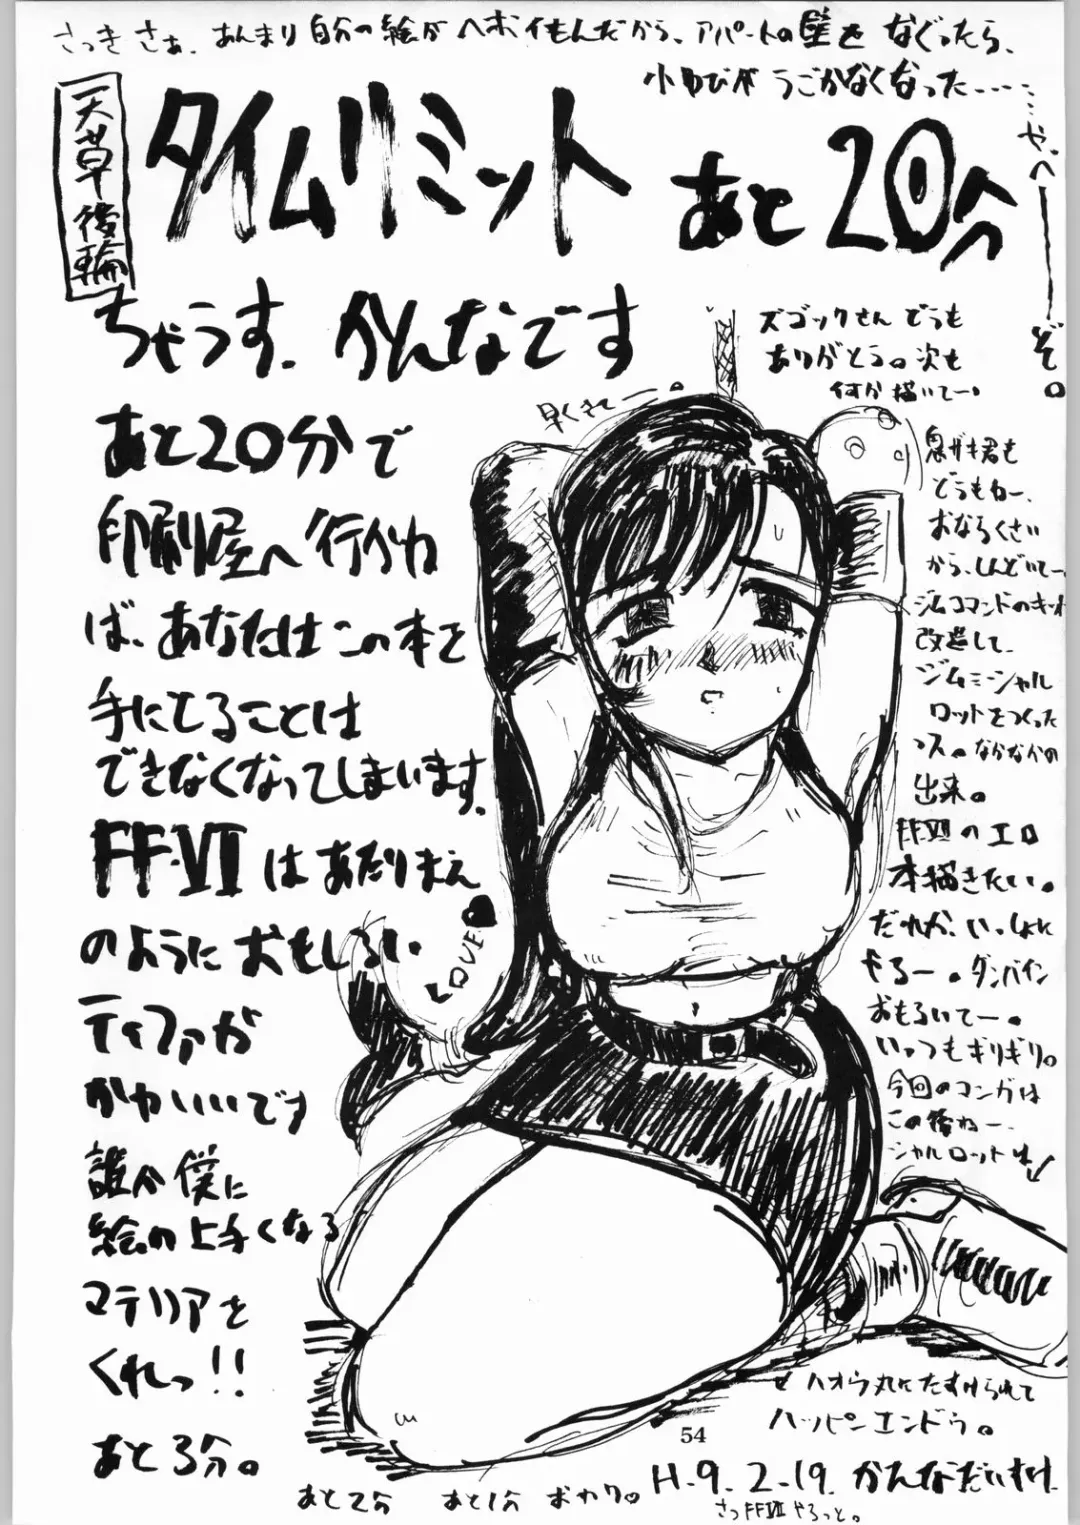 さっきさぁ、あんまり自分の絵がヘボイもんだから、アパートの壁をなぐったら、
小ゆびがうごかなくなった……
…やべーーぞ。
天草後輪
タイムリミット あと20分
ちゃうす、かんなです
あと20分で
印刷屋へ行かね
ば、あなたはこの本を
手にてることは
できなくなってしまいます。
FF.VIIはあたりまえ
のようにおもしろい
ティファが
かわいいです
誰か僕に
絵の上手くなる
マテリアを
くれっ!!
あと3分。
あと2分 あと1分 おわり。
早くきてー。
LOVE
ズゴックさんどうも
ありがとう。次も
何か描いてー。
息ガキ君も
どうもねー、
おならくさい
から、しんどいてー
ジムコマンドのキット
改造して、
ジムミーシャル
ロットをつくった
ッス。なかなかの
出来。
FF.VIIのエロ
本描きたい。
だれか、いっしょに
やろー。ダンバイン
おもろいてー。
いっつもギリギリ。
今回のコンガは
この後ねー、
シャルロットは
ハオウ丸にたすけられて
ハッピーエンドゥ。
54
H.9.2.19. かんなだいすけ
さっFFVIIやろっと。